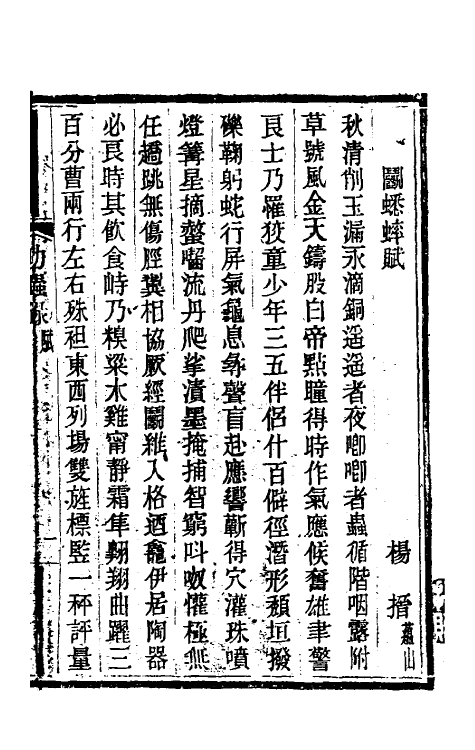 鬭蟋蟀賦
楊搢蕭山
秋清削玉漏永滴銅遥遥者夜唧唧者蟲循階咽露附
草號風金天鑄股白帝點瞳得時作氣應候奮雄聿警
良士乃罹狡童少年三五伴侶什百僻徑潛形頹垣撥
礫鞠躬蛇行屏氣龜息彖聲盲赴應響蘄得穴灌珠噴
燈篝星摘螯囓流丹爬拏漬墨掩捕智窮叫呶懽極無
任趫跳無傷脛翼相協厥經鬭雜入格迺龕伊居陶器
必良時其飲食峙乃糗粱木雞甯靜霜隼翱翔曲躍三
百分曹兩行左右殊袒東西列場雙旌標監一秤評量
功蟲錄 賦